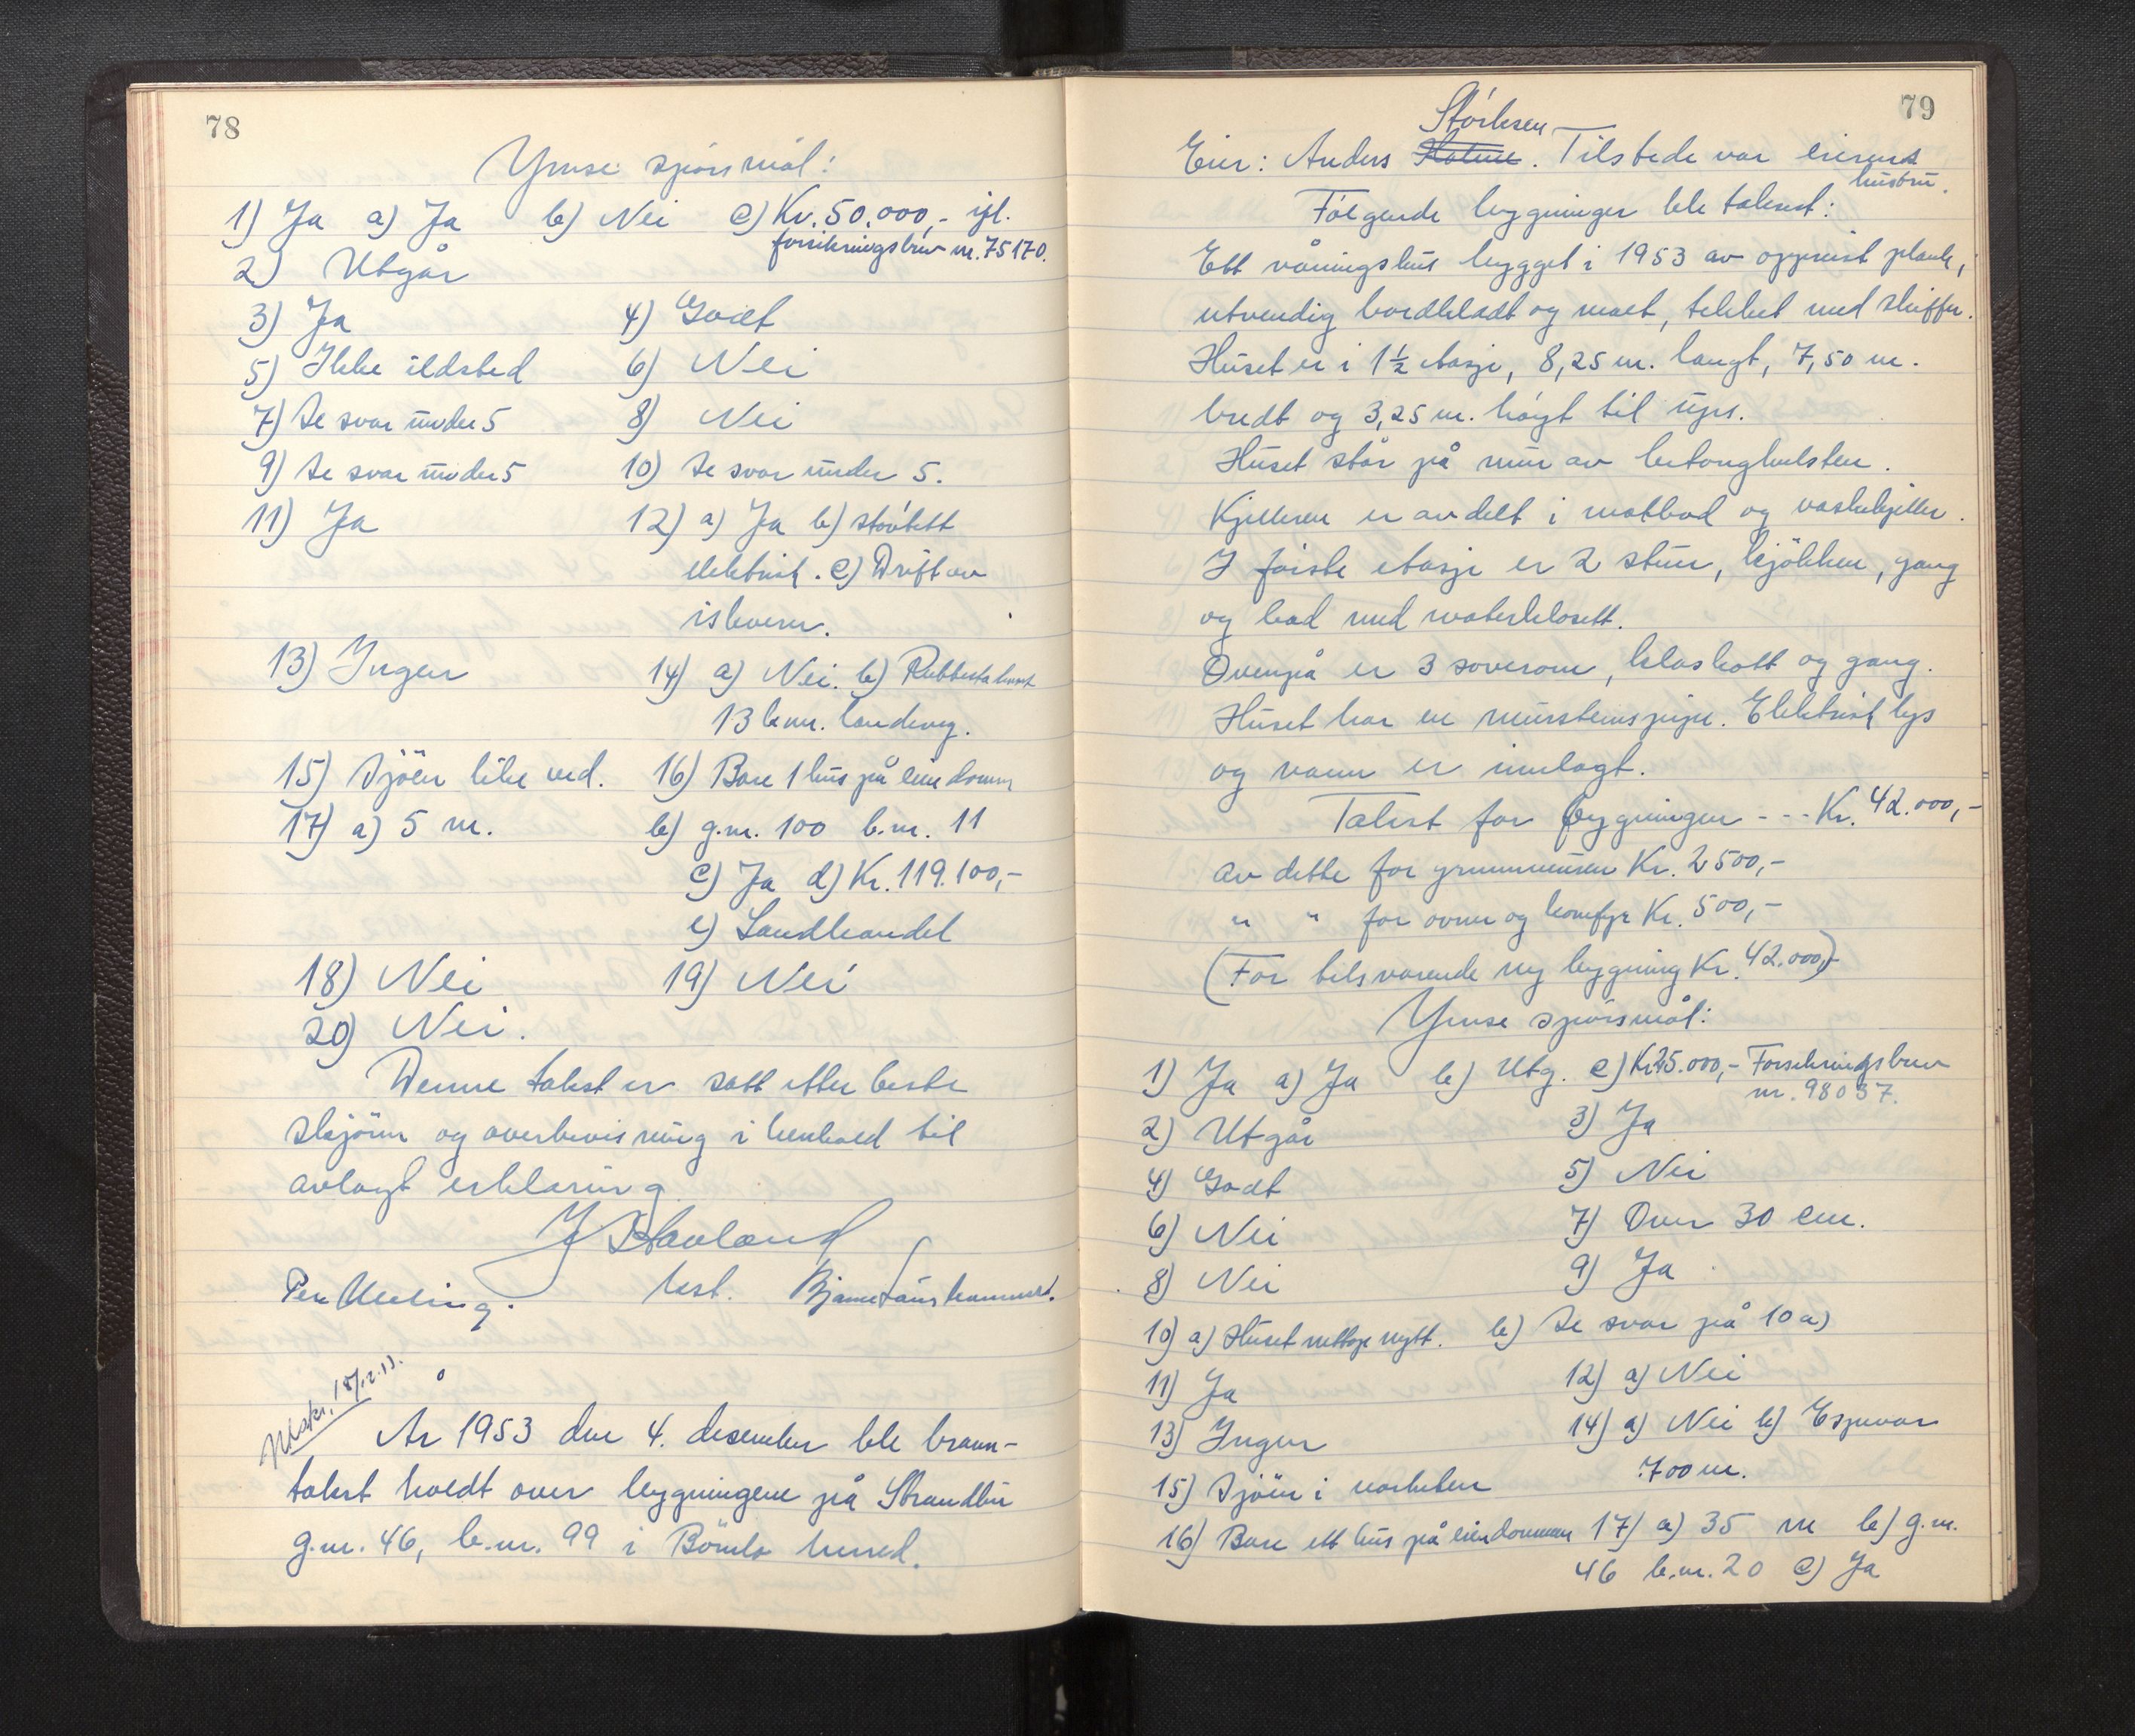 78
Ymse spörsmål:
1) Ja a) Ja b) Nei c) Kr. 50.000,- ifl.
forsikringsbrev nr. 75170.
2) Utgår
3) Ja 4) Godt
5) Ikke ildsted 6) Nei
7) Se svar under 5 8) Nei
9) Se svar under 5 10) Se svar under 5.
11) Ja 12) a) Ja b) støvtett
elektrisk. c) Drift av
iskvern.
13) Ingen 14) a) Nei. b)
13 km. landeveg.
15) Sjöen like ved. 16) Bare 1 hus på eiendomm
17) a) 5 m. b) g.nr. 100 b.nr. 11
c) Ja d) Kr. 119.100,-
e) Landhandel
18) Nei 19) Nei
20) Nei.
Denne takst er satt etter beste
skjönn og overbevisning i henhold til
avlagt erklæring
J Stavland
Per Urling. best. Bjarne
18/12.53.
År 1953 den 4. desember ble brann-
takst holdt over bygningene på Strandbu
g.nr. 46, b.nr. 99 i Bömlo herred.
79
Störksen
Eier: Anders Holme. Tilstede var eierens
hustru.
Fölgende bygninger ble taksert:
Ett våningshus bygget i 1953 av oppreist plank,
utvendig bordkledt og malt, tekket med skiffer.
Huset er i 1 ½ etasje, 8,25 m. langt, 7,50 m.
bredt og 3,25 m. höyt til ups.
Huset står på mur av betonghulsten.
Kjelleren er avdelt i matbod og vaskekjeller.
I förste etasje er 2 stuer, kjökken, gang
og bad med waterklosett.
Ovenpå er 3 soverom, kleskott og gang.
Huset har en murstenspipe. Elektrisk lys
og vann er innlagt.
Takst for bygningen --- Kr. 42.000,-
av dette for grunnmuren Kr. 2500,-
" " for ovner og komfyr Kr. 500,-
(For tilsvarende ny bygning Kr. 42.000,-)
Ymse spörsmål:
1) Ja a) Ja b) Utg. c) Kr. 25.000,- Forsikringsbrev
nr. 98037.
2) Utgår 3) Ja
4) Godt 5) Nei
6) Nei 7) Over 30 cm.
8) Nei 9) Ja
10) a) Huset nettopp nytt. b) Se svar på 10 a)
11) Ja 12) a) Nei
13) Ingen 14) a) Nei b) Espevær
700 m.
15) Sjöen i nærheten
16) Bare ett hus på eiendommen 17) a) 35 m b) g.nr.
46 b.nr. 20 c) Ja